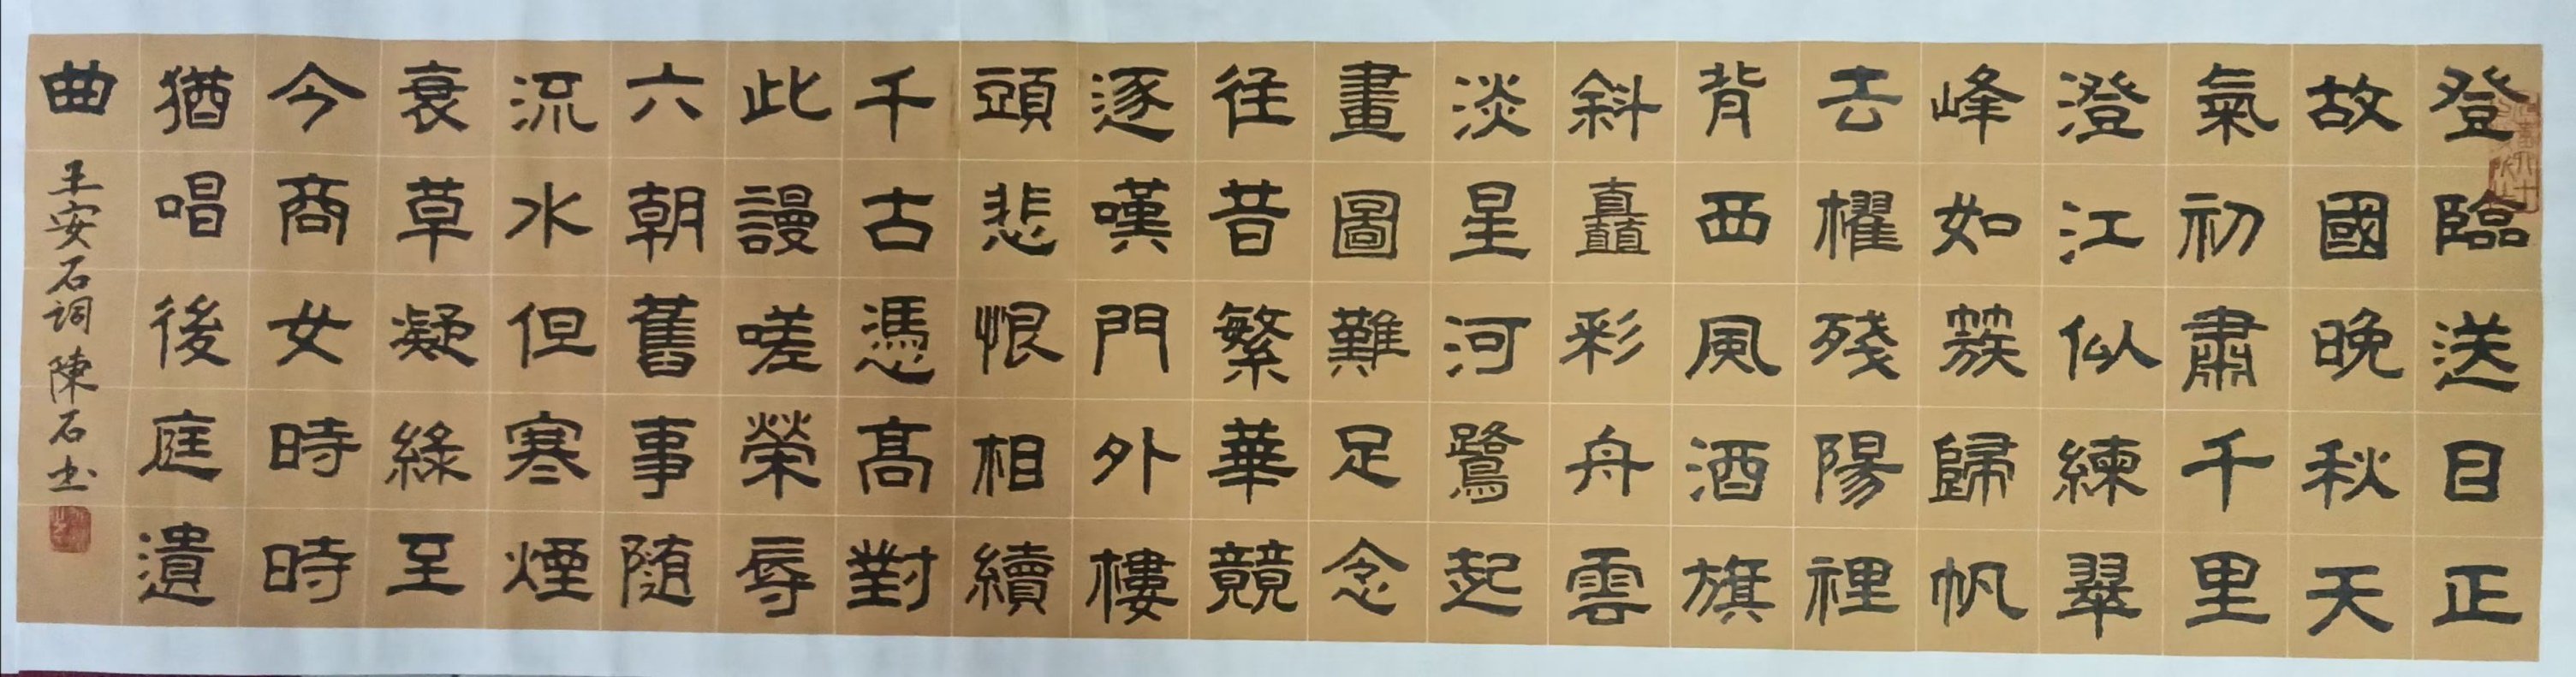 登臨送目正
故國晚秋天
氣初肅千里
澄江似練翠
峰如簇歸帆
去櫂殘陽裡
背西風酒旗
斜矗彩舟雲
淡星河鷺起
畫圖難足念
往昔繁華競
逐嘆門外樓
頭悲恨相續
千古憑高對
此謾嗟榮辱
六朝舊事隨
流水但寒煙
衰草凝綠至
今商女時時
猶唱後庭遺
曲
王安石詞 陳石书